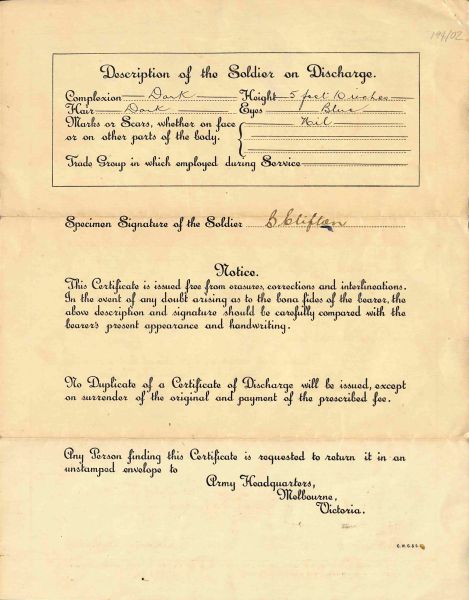 194/02
Description of the Soldier on Discharge.
Complexion Dark Height 5 feet 10 inches
Hair Dark Eyes Blue
Marks or Scars, whether on face Nil
or on other parts of the body.
Trade Group in which employed during Service
Specimen Signature of the Soldier B Clifton
Notice.
This Certificate is issued free from erasures, corrections and interlineations.
In the event of any doubt arising as to the bona fides of the bearer, the
above description and signature should be carefully compared with the
bearer's present appearance and handwriting.
No Duplicate of a Certificate of Discharge will be issued, except
on surrender of the original and payment of the prescribed fee.
Any Person finding this Certificate is requested to return it in an
unstamped envelope to
Army Headquarters,
Melbourne,
Victoria.